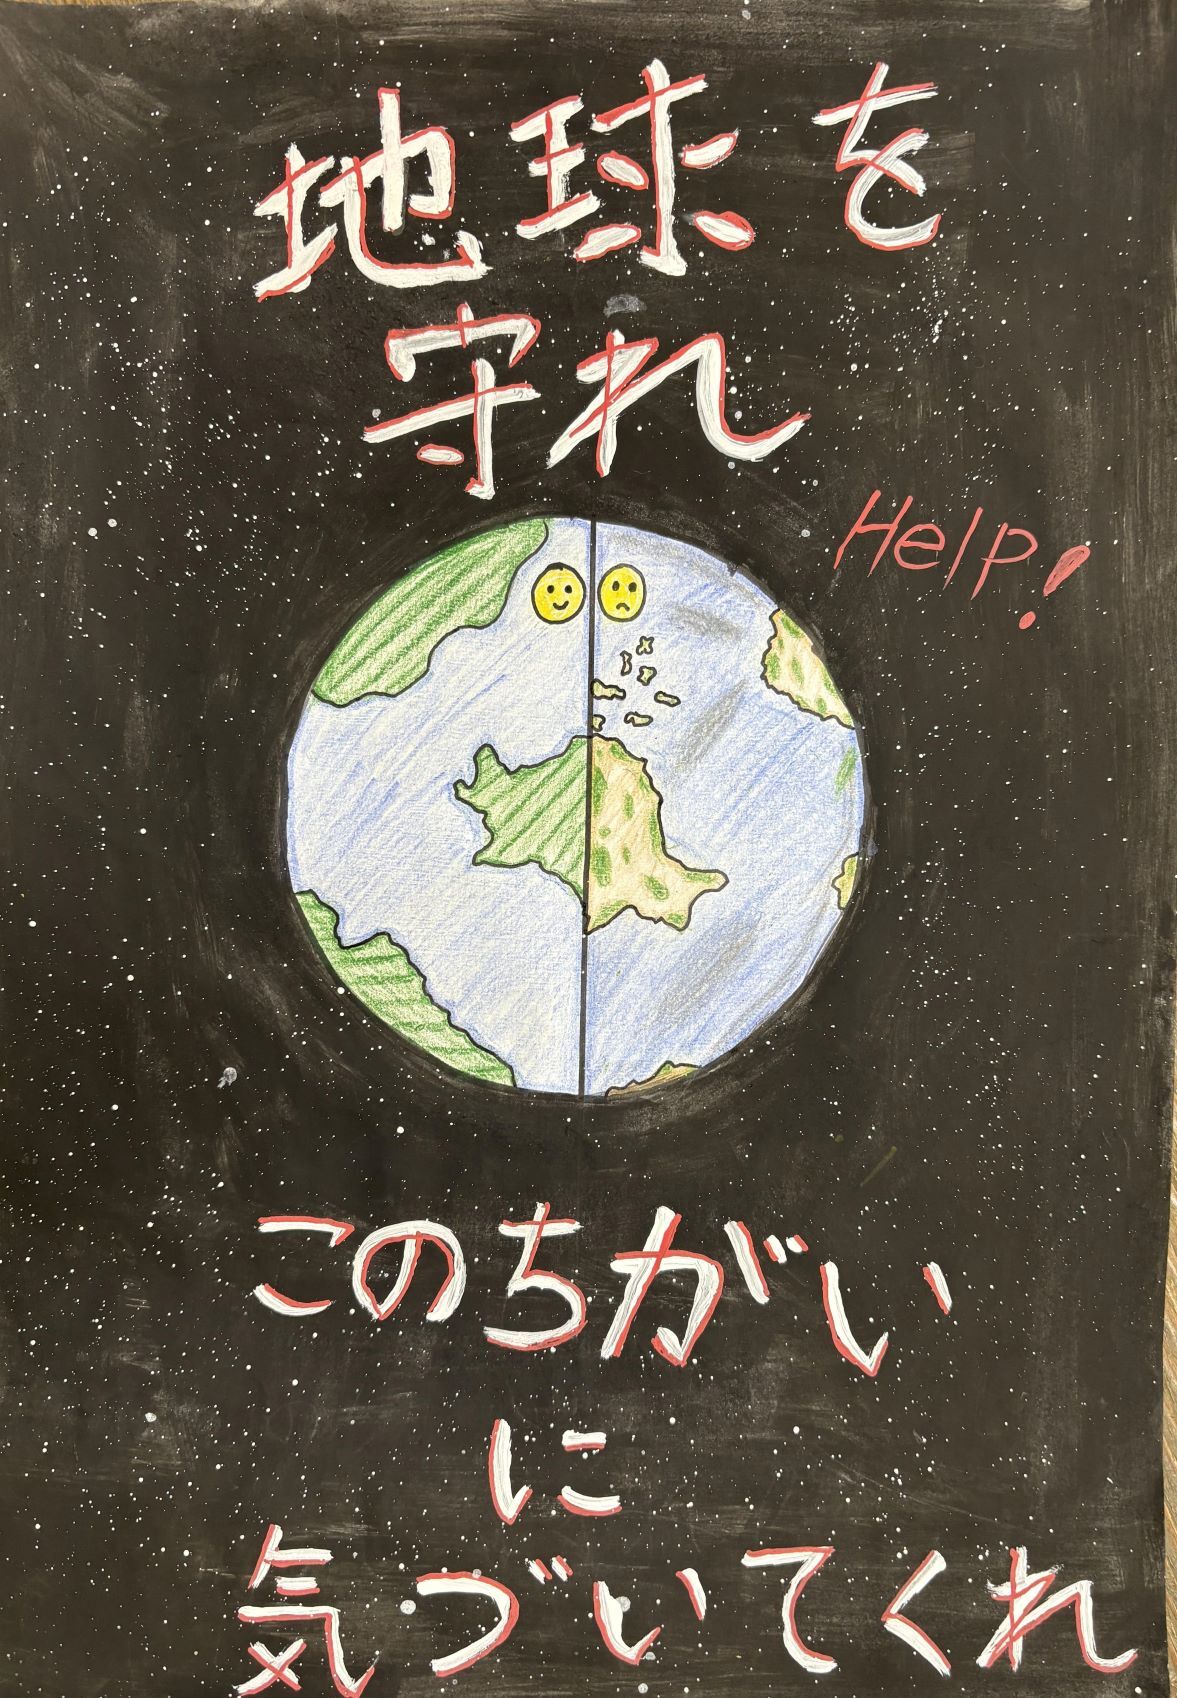 地球を
守れ
Help!
このちがい
に
気づいてくれ